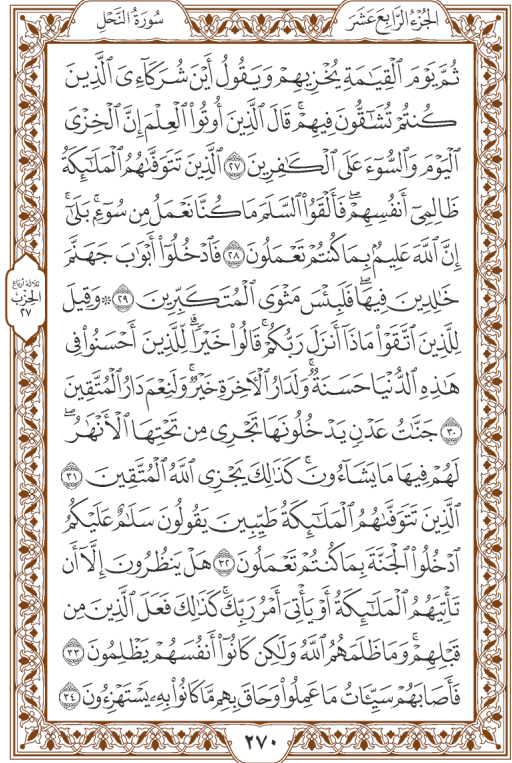 الجُزْءُ الرَّابِعَ عَشَرَ
سُورَةُ النَّحْلِ
ثُمَّ يَوْمَ ٱلْقِيَـٰمَةِ يُخْزِيهِمْ وَيَقُولُ أَيْنَ شُرَكَآءِىَ ٱلَّذِينَ
كُنتُمْ تُشَـٰٓقُّونَ فِيهِمْ ۚ قَالَ ٱلَّذِينَ أُوتُوا۟ ٱلْعِلْمَ إِنَّ ٱلْخِزْىَ
ٱلْيَوْمَ وَٱلسُّوٓءَ عَلَى ٱلْكَـٰفِرِينَ ٢٧ ٱلَّذِينَ تَتَوَفَّىٰهُمُ ٱلْمَلَـٰٓئِكَةُ
ظَالِمِىٓ أَنفُسِهِمْ ۖ فَأَلْقَوُا۟ ٱلسَّلَمَ مَا كُنَّا نَعْمَلُ مِن سُوٓءٍۭ ۚ بَلَىٰٓ ۚ
إِنَّ ٱللَّهَ عَلِيمٌۢ بِمَا كُنتُمْ تَعْمَلُونَ ٢٨ فَٱدْخُلُوٓا۟ أَبْوَٰبَ جَهَنَّمَ
خَـٰلِدِينَ فِيهَا ۖ فَلَبِئْسَ مَثْوَى ٱلْمُتَكَبِّرِينَ ٢٩ ۞ وَقِيلَ
لِلَّذِينَ ٱتَّقَوْا۟ مَاذَآ أَنزَلَ رَبُّكُمْ ۚ قَالُوا۟ خَيْرًا ۗ لِّلَّذِينَ أَحْسَنُوا۟ فِى
هَـٰذِهِ ٱلدُّنْيَا حَسَنَةٌ ۚ وَلَدَارُ ٱلْـَٔاخِرَةِ خَيْرٌ ۚ وَلَنِعْمَ دَارُ ٱلْمُتَّقِينَ
٣٠ جَنَّـٰتُ عَدْنٍ يَدْخُلُونَهَا تَجْرِى مِن تَحْتِهَا ٱلْأَنْهَـٰرُ ۖ
لَهُمْ فِيهَا مَا يَشَآءُونَ ۚ كَذَٰلِكَ يَجْزِى ٱللَّهُ ٱلْمُتَّقِينَ ٣١
ٱلَّذِينَ تَتَوَفَّىٰهُمُ ٱلْمَلَـٰٓئِكَةُ طَيِّبِينَ ۙ يَقُولُونَ سَلَـٰمٌ عَلَيْكُمُ
ٱدْخُلُوا۟ ٱلْجَنَّةَ بِمَا كُنتُمْ تَعْمَلُونَ ٣٢ هَلْ يَنظُرُونَ إِلَّآ أَن
تَأْتِيَهُمُ ٱلْمَلَـٰٓئِكَةُ أَوْ يَأْتِىَ أَمْرُ رَبِّكَ ۚ كَذَٰلِكَ فَعَلَ ٱلَّذِينَ مِن
قَبْلِهِمْ ۚ وَمَا ظَلَمَهُمُ ٱللَّهُ وَلَـٰكِن كَانُوٓا۟ أَنفُسَهُمْ يَظْلِمُونَ ٣٣
فَأَصَابَهُمْ سَيِّـَٔاتُ مَا عَمِلُوا۟ وَحَاقَ بِهِم مَّا كَانُوا۟ بِهِۦ يَسْتَهْزِءُونَ ٣٤
ثلاثة أرباع
الحزب
٢٧
٢٧٠